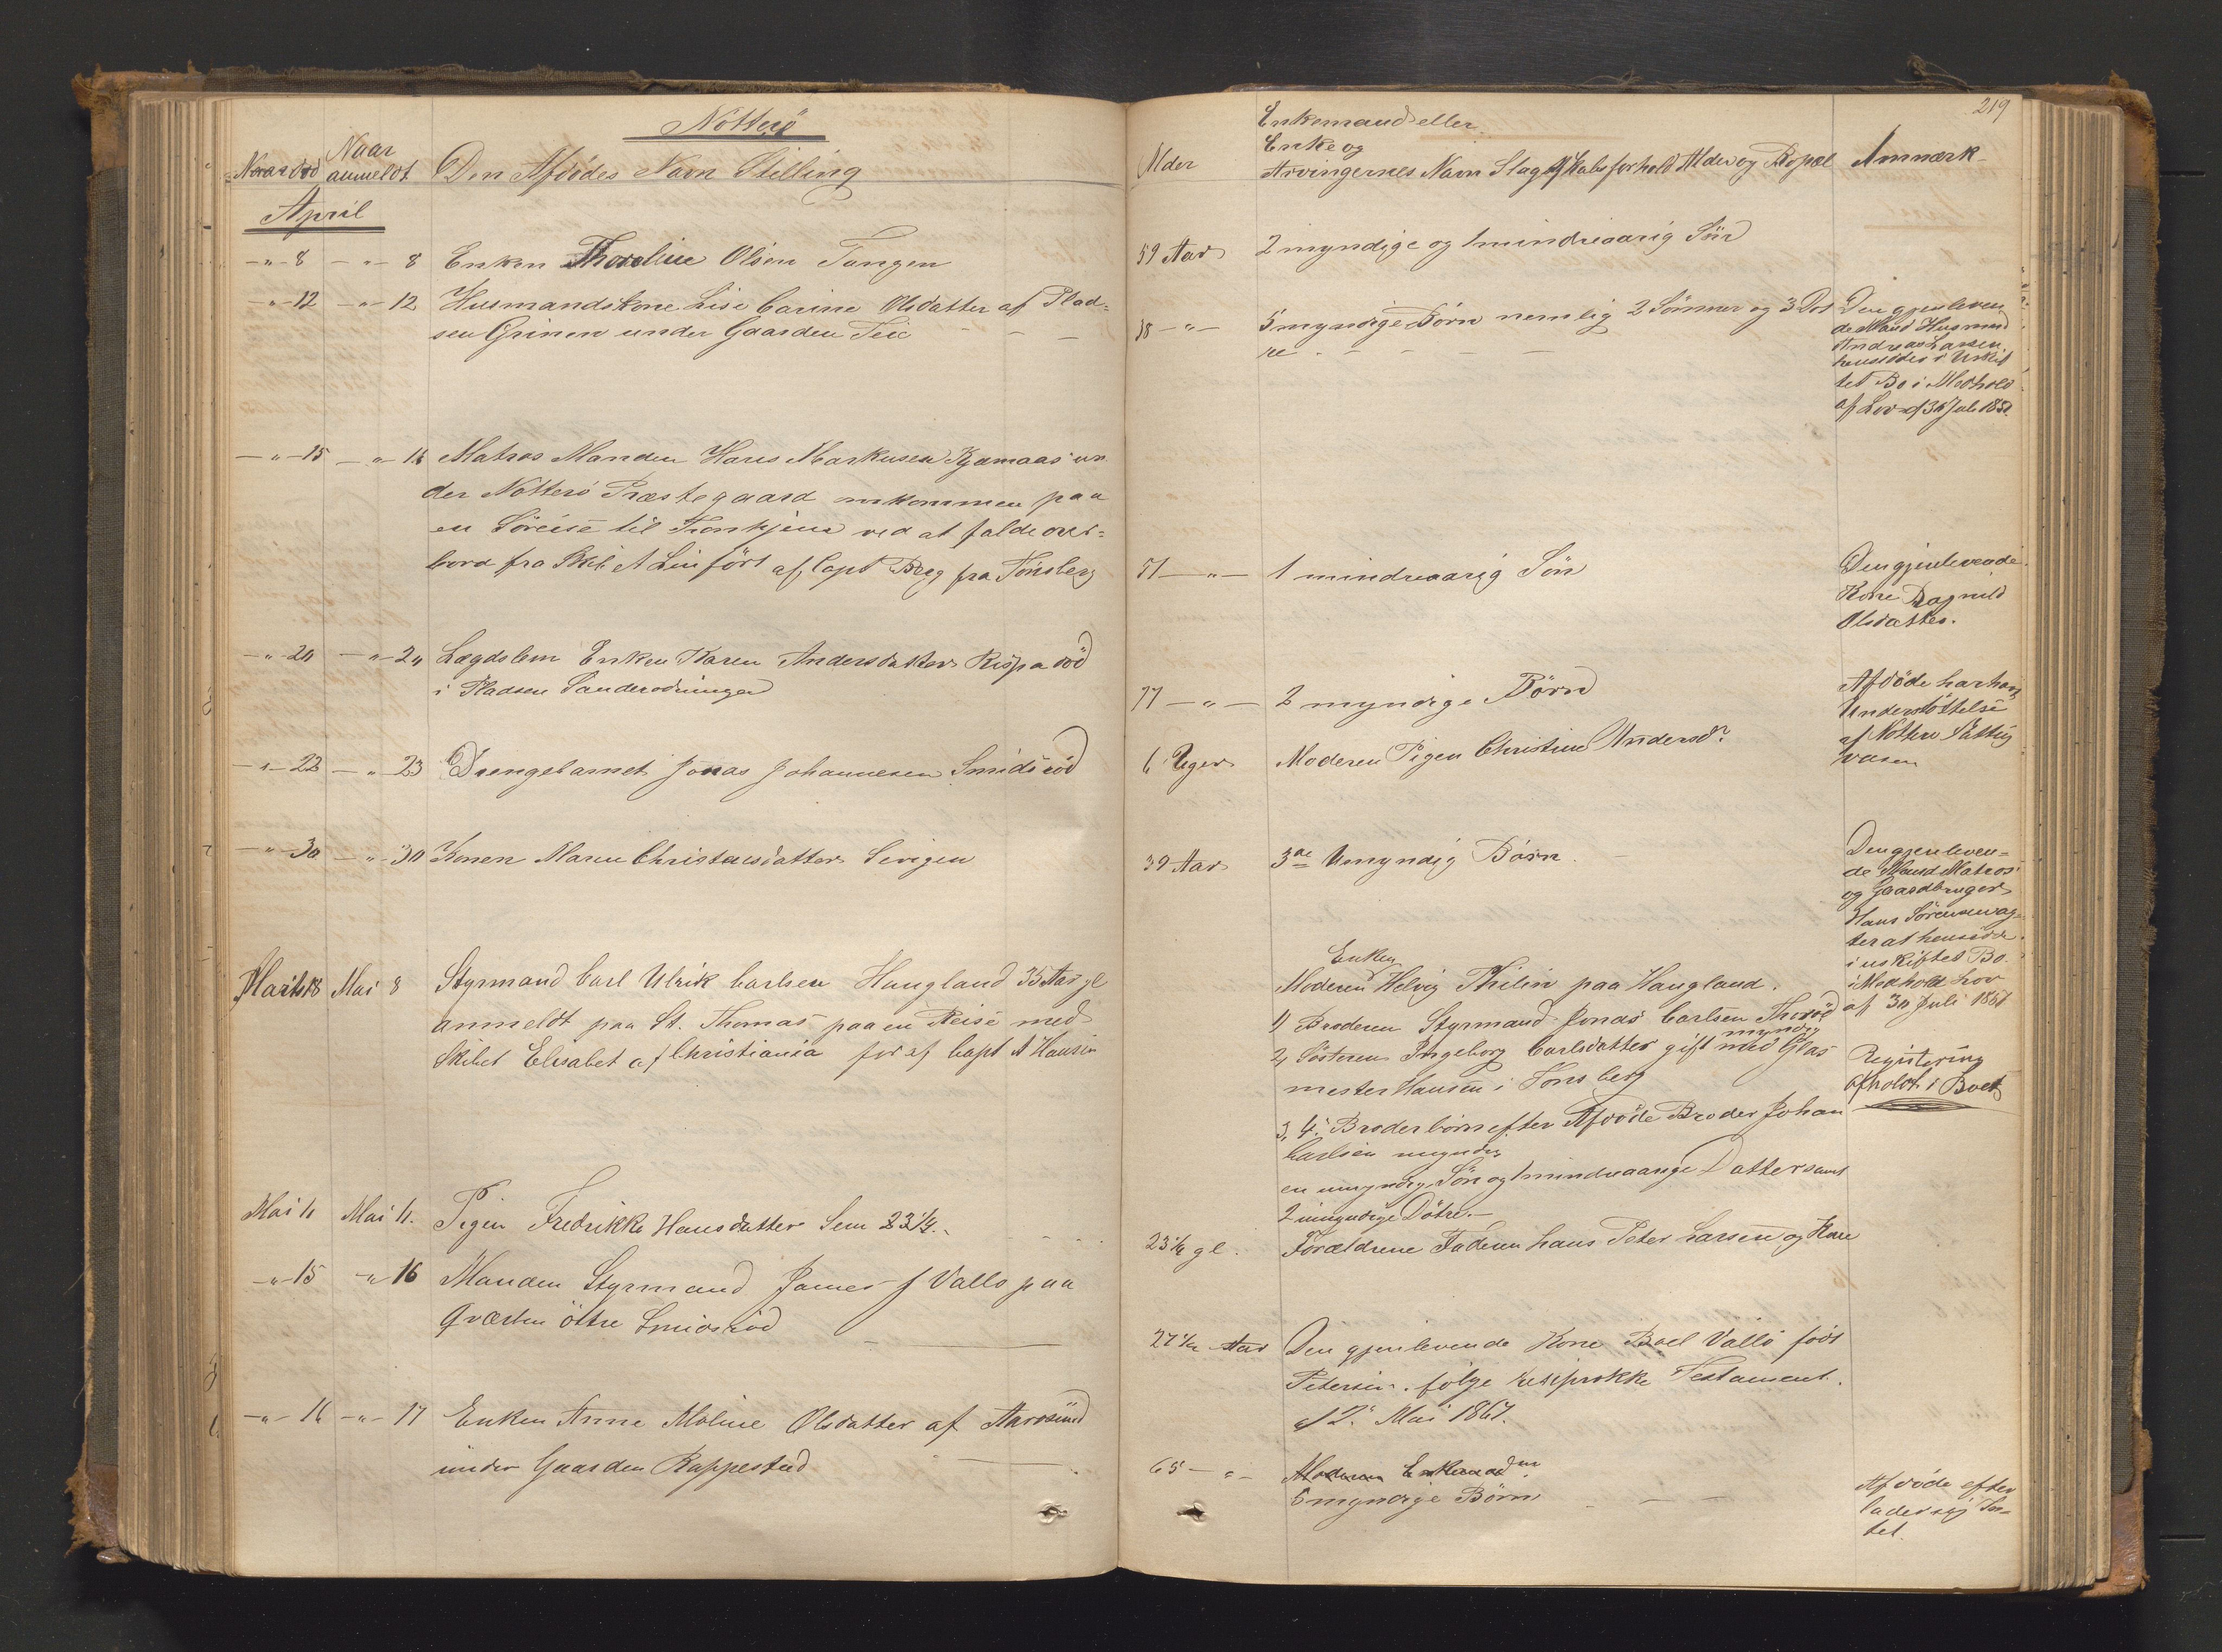 Nötterö
Naar död
Naar
anmeldt
Den Afdödes Navn Stilling
April
-"- 8 -"- 8 Enken Thoroline Olsen Tangen
-"- 12 -"- 12 Husmandskone Lise Carine Olsdatter af Plad-
sen Grinen under Gaarden Teie
-"- 15 -"- 16 Matros Manden Hans Markusen Kjæmaas un
der Nötterö Præstegaard omkommen paa
en Söreise til Tronhjem ved at falde over-
bord fra Skib fört af Capt Berg fra Tönsberg
-"- 20 -"- 20 Lægdslem Enken Karen Andersdatter Rispa död
i Pladsen Sanderødningen
-"- 22 -"- 23 Drengebarnet Jonas Johannesen Smidsröd
-"- 30 -"- 30 Konen Maren Christensdatter
Marts 18 Mai 8 Styrmand Carl Ulrik Carlsen Haugland 35 Aar gl
anmeldt paa St. Thomas paa en Reise med
Skibet Elisabet af Christiania för af Capt A Hansen
Mai 11 Mai 11. Pigen Fredrikke Hansdatter Sem 23 1/4.
-"- 15 -"- 16 Manden Styrmand James J Vallo paa
Qværten öttre Smidsröd
-"- 16 -"- 17 Enken Anne Moline Olsdatter af Aarösund
under Gaarden Rappestad
219
Alder
Enkemand eller
Enke og
Arvingernes Navn Slægtskabsforhold Alder og Bopæl
Anmærk
59 Aar 2 myndige og 1 mindreaarig Sön
38 -"- 5 myndige Börn nemlig 2 Sönner og 3 Döt
re
Den gjenleven
de Mand Husmand
Andreas Larsen
hensidder i Uskif
tet Bo i Medhold
af Lov af 30 Juli 1851.
71 -"- 1 mindreaarig Sön
Den gjenlevende
Kone Ragnild
Olsdatter.
77 -"- 2 myndige Börn
Afdöde har havt
Understöttelse
af Nötterö Fattig
væsen
6 Uger Moderen Pigen Christine Andersdr
39 Aar 3de Umyndig Börn
Den gjenleven-
de Mand Matros
og Gaardbruger
Hans Sörensen ag-
ter at hensidde
i uskiftet Bo
i Medhold Lov
af 30 Juli 1851
Enken
Moderen Helvig Thilin paa Haugland.
1) Broderen Styrmand Jonas Carlsen Thoröd
myndig
2, Sösteren Ingeborg Carlsdatter gift med Glas
mester Hansen i Tönsberg
3, 4. Broderbörn efter Afdöde Broder Johan
Carlsen myndig
en umyndig Sön og 1 mindreaarige Datter samt
2 umyndige Dötre.
Registering
afholdt i Boet
23 1/4 gl. Forældrene Faderen Hans Peter Larsen og Kone
27 1/2 Aar Den gjenlevende Kone Boel Vallö född
Petersen. fölge resiprokke Testament.
af 2. Mai 1867.
65 -"- Moderen Enkemanden
5 myndige Börn
Afdöde efter
lader sig In-
tet.